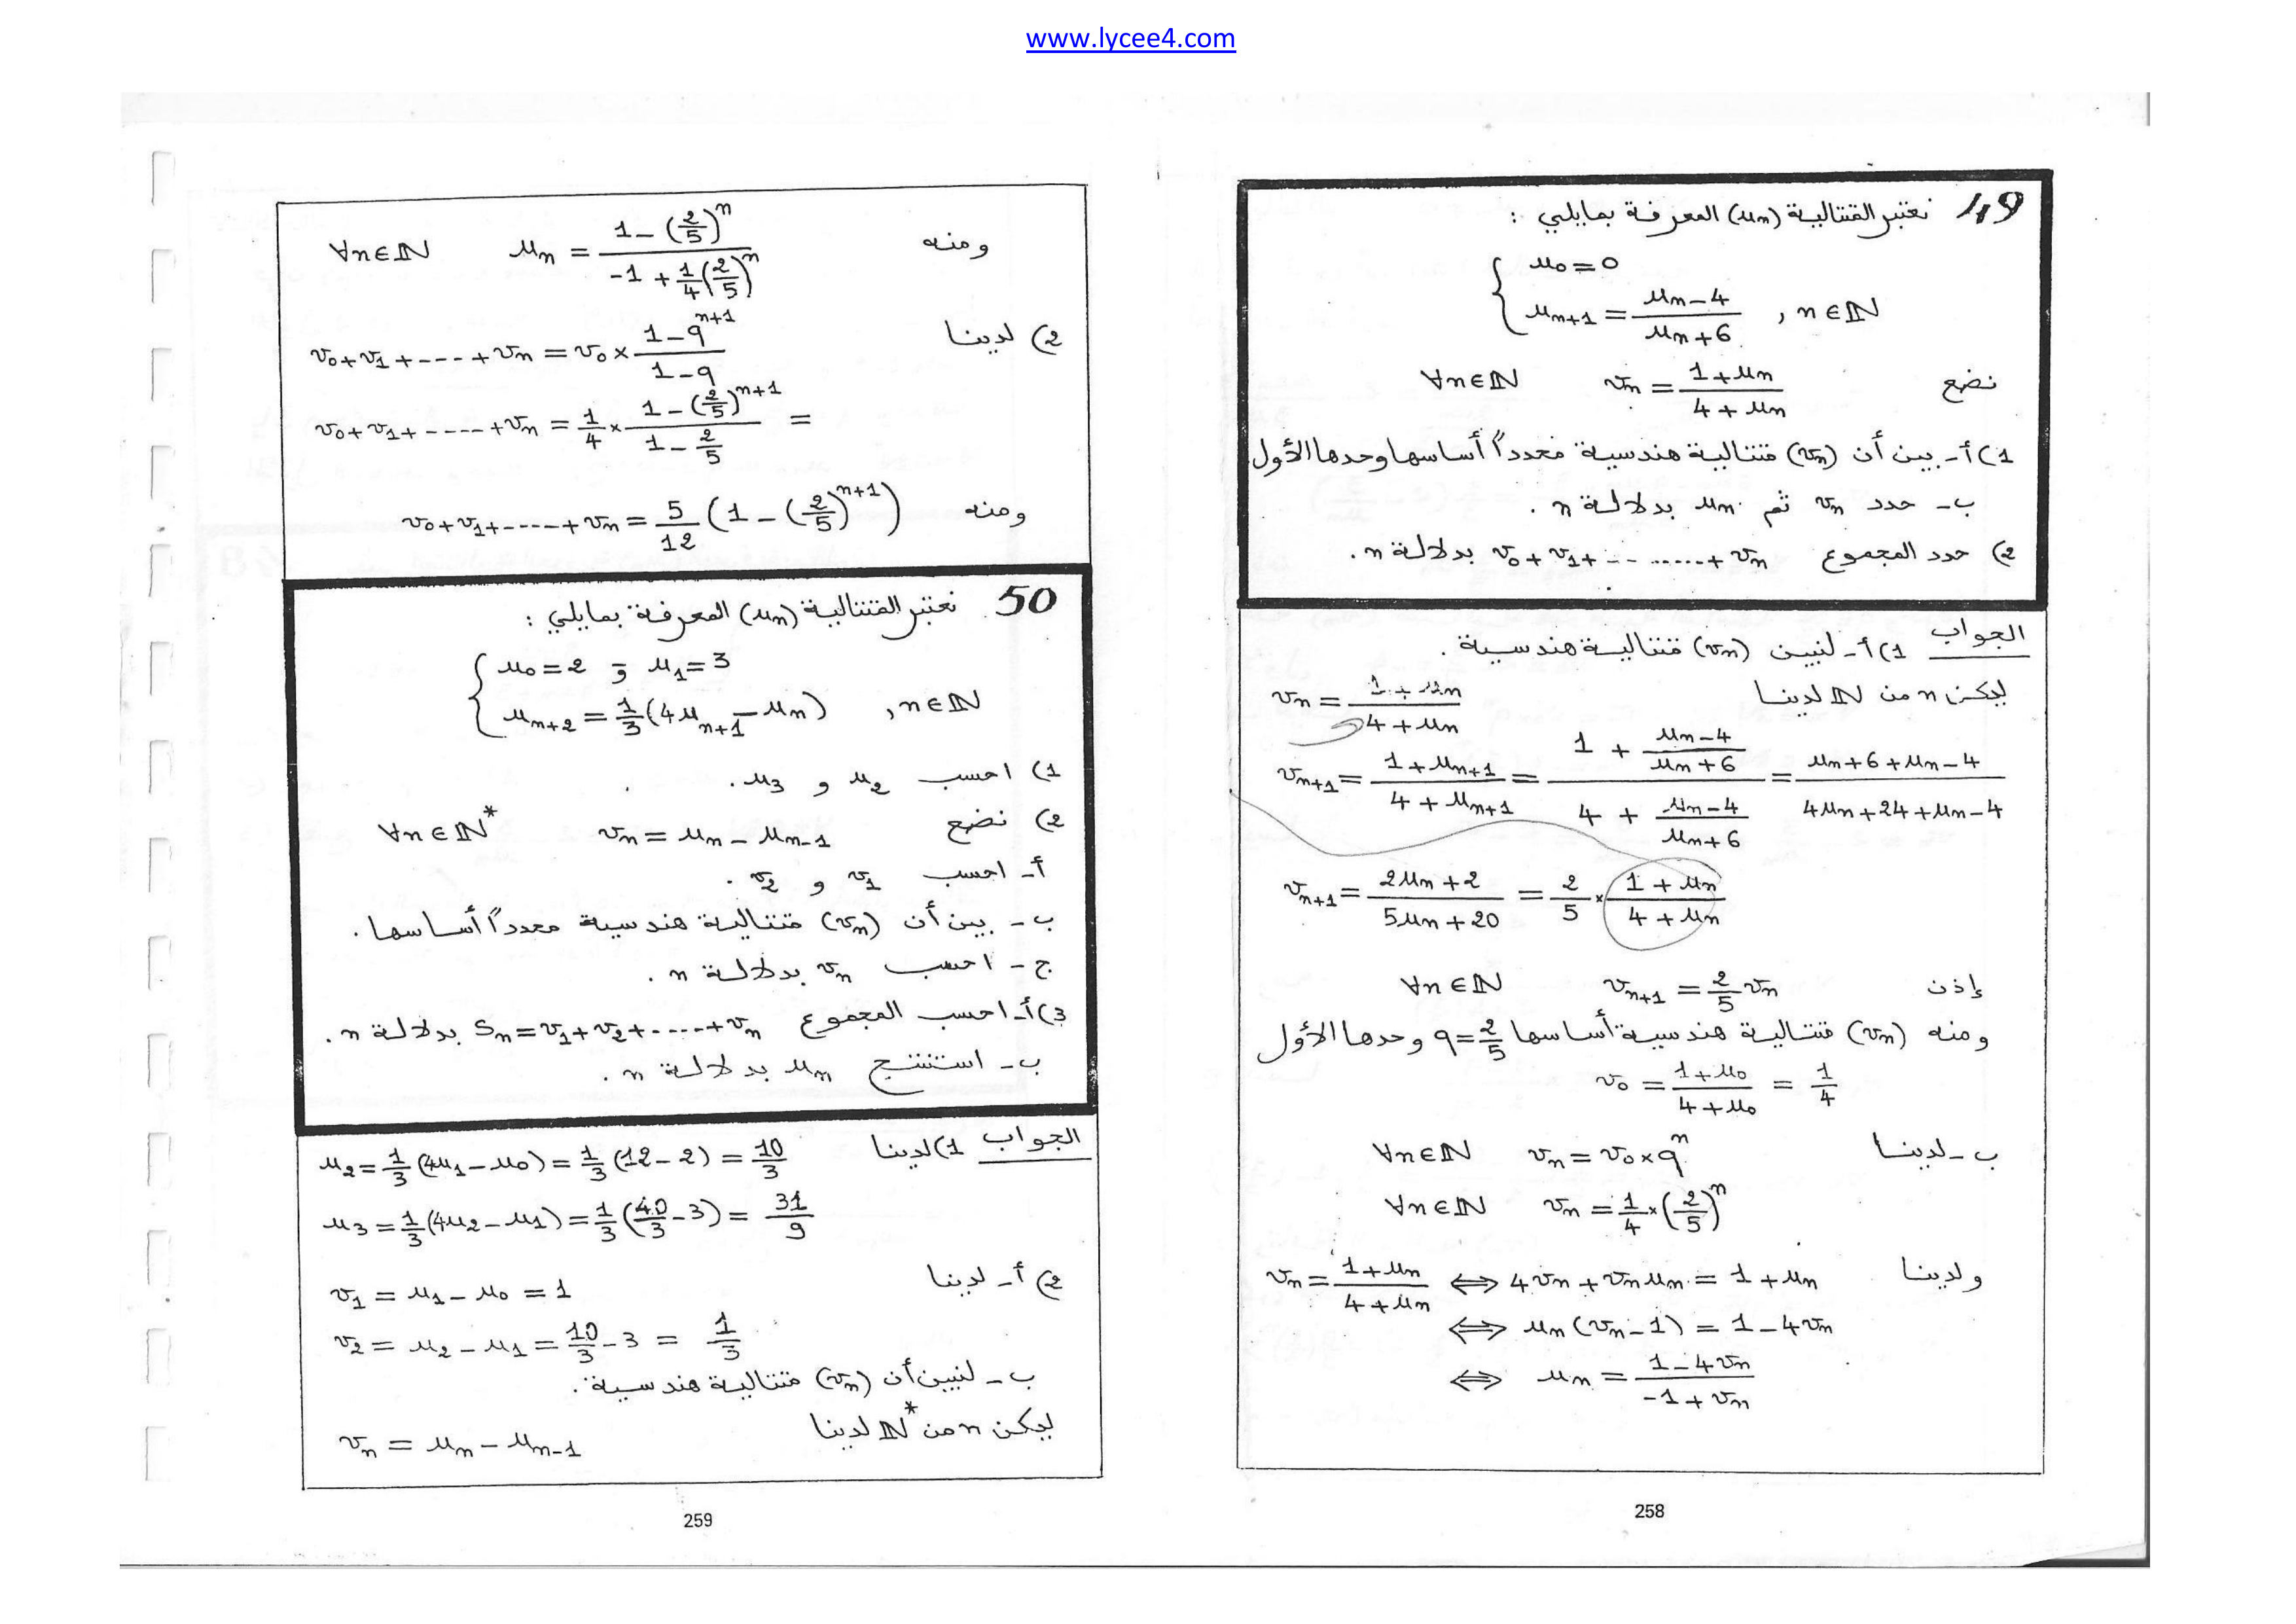 www.lycee4.com
49 نعتبر المتتالية (u_n) المعرفة بمايلي :
{ u_0 = 0
u_{n+1} = (u_n - 4)/(u_n + 6) , n ∈ ℕ
نضع v_n = (1 + u_n)/(4 + u_n) ∀n ∈ ℕ
1) أ- بين أن (v_n) متتالية هندسية محدداً أساسها وحدها الأول
ب- حدد v_n ثم u_n بدلالة n .
2) حدد المجموع v_0 + v_1 + -- ...... + v_n بدلالة n .
الجواب 1) أ- لنبين (v_n) متتالية هندسية .
ليكن n من ℕ لدينا v_n = (1 + u_n)/(4 + u_n)
v_{n+1} = (1 + u_{n+1})/(4 + u_{n+1}) = (1 + (u_n - 4)/(u_n + 6))/(4 + (u_n - 4)/(u_n + 6)) = (u_n + 6 + u_n - 4)/(4u_n + 24 + u_n - 4)
v_{n+1} = (2u_n + 2)/(5u_n + 20) = 2/5 × (1 + u_n)/(4 + u_n)
إذن v_{n+1} = 2/5 v_n ∀n ∈ ℕ
ومنه (v_n) متتالية هندسية أساسها q = 2/5 وحدها الأول
v_0 = (1 + u_0)/(4 + u_0) = 1/4
ب- لدينا v_n = v_0 × q^n ∀n ∈ ℕ
∀n ∈ ℕ v_n = 1/4 × (2/5)^n
ولدينا v_n = (1 + u_n)/(4 + u_n) ⟺ 4v_n + v_n u_n = 1 + u_n
⟺ u_n (v_n - 1) = 1 - 4v_n
⟺ u_n = (1 - 4v_n)/(-1 + v_n)
258
ومنه u_n = (1 - (2/5)^n)/(-1 + 1/4 (2/5)^n) ∀n ∈ ℕ
2) لدينا v_0 + v_1 + ---- + v_n = v_0 × (1 - q^{n+1})/(1 - q)
v_0 + v_1 + ---- + v_n = 1/4 × (1 - (2/5)^{n+1})/(1 - 2/5) =
ومنه v_0 + v_1 + ---- + v_n = 5/12 (1 - (2/5)^{n+1})
50 نعتبر المتتالية (u_n) المعرفة بمايلي :
{ u_0 = 2 و u_1 = 3
u_{n+2} = 1/3 (4u_{n+1} - u_n) , n ∈ ℕ
1) احسب u_2 و u_3 .
2) نضع v_n = u_n - u_{n-1} ∀n ∈ ℕ*
أ- احسب v_1 و v_2 .
ب- بين أن (v_n) متتالية هندسية محدداً أساسها .
ج- احسب v_n بدلالة n .
3) أ- احسب المجموع S_n = v_1 + v_2 + ---- + v_n بدلالة n .
ب- استنتج u_n بدلالة n .
الجواب 1) لدينا u_2 = 1/3 (4u_1 - u_0) = 1/3 (12 - 2) = 10/3
u_3 = 1/3 (4u_2 - u_1) = 1/3 (40/3 - 3) = 31/9
2) أ- لدينا v_1 = u_1 - u_0 = 1
v_2 = u_2 - u_1 = 10/3 - 3 = 1/3
ب- لنبين أن (v_n) متتالية هندسية .
ليكن n من ℕ* لدينا v_n = u_n - u_{n-1}
259